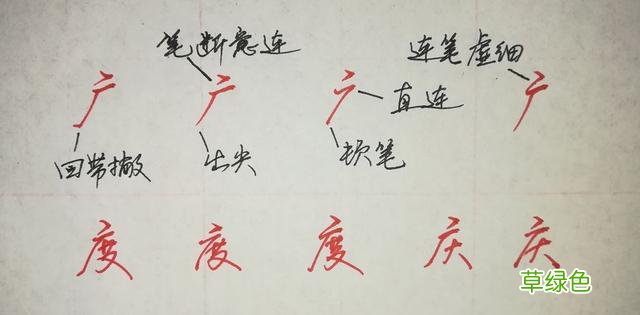 笔断意连 连笔虚细
广 广 广 广
直连
回带撇 出尖 顿笔
度 度 度 庆 庆
草绿色